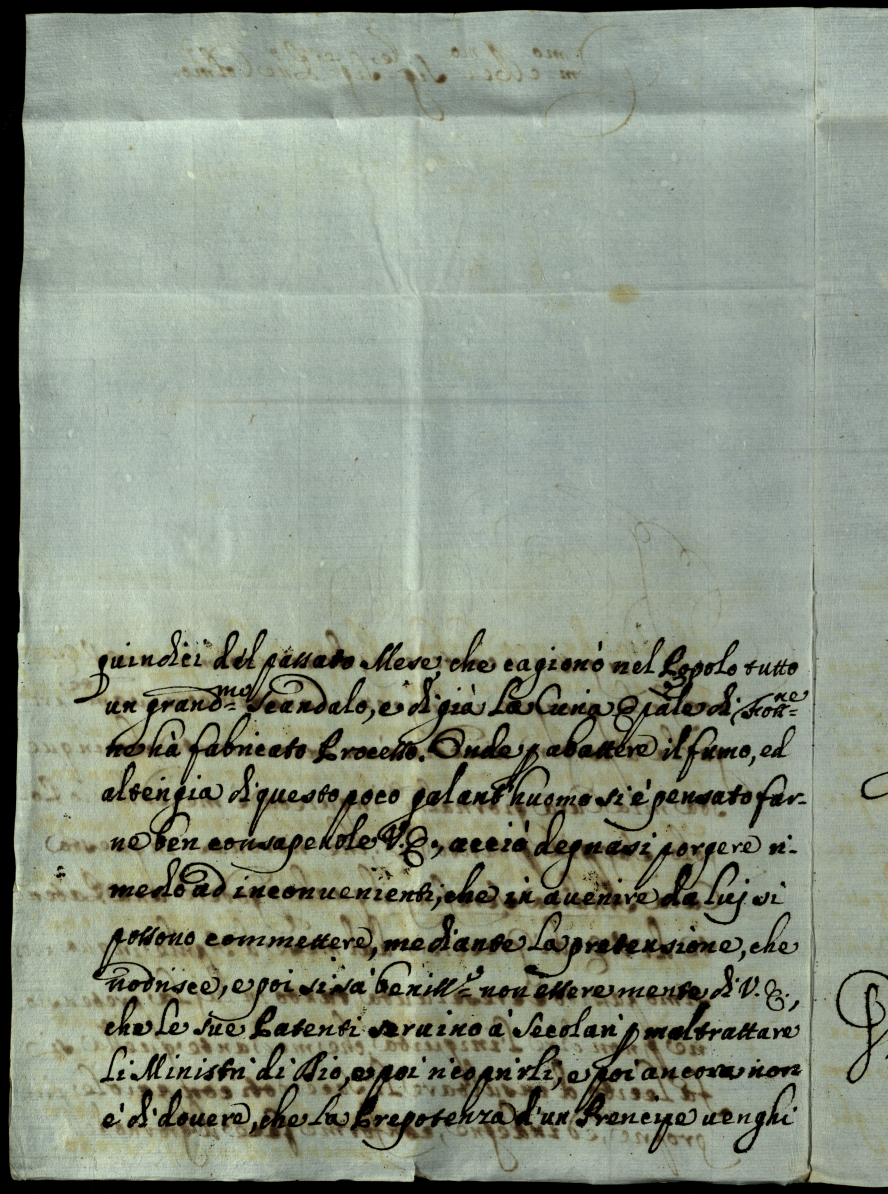 quindici del passato Mese, che cagionò nel Popolo tutto
un grandmo scandalo, e di già la Curia Epāle di
ne hà fabricato Processo. Onde p abattere il fumo, ed
alterigia di questo poco galant'huomo si è pensato far-
ne ben consapevole V.E., acciò degnasi porgere ri-
medio ad inconvenienti, che in avenire da luj si
possono commettere, mediante la pretensione, che
nodrisce, e poi si sà beniss.o non essere mente di V.E.,
che le sue Patenti servino à Secolari p maltrattare
li Ministri di Dio, e poi ricoprirli, e poi ancora non
è di dovere, che la Prepotenza d'un Prencipe venghi